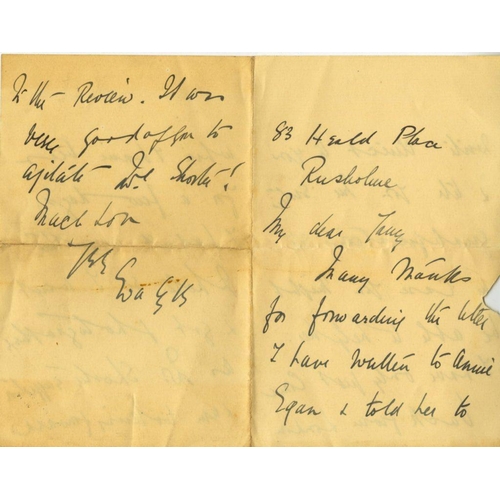 83 Heald Place
Rusholme
My dear Fanny
Many thanks
for forwarding the letter
I have written to Annie
Egan & told her to
to the Review. It was
very good of you to
agitate Dr Shorter!
Much Love
Eva G B